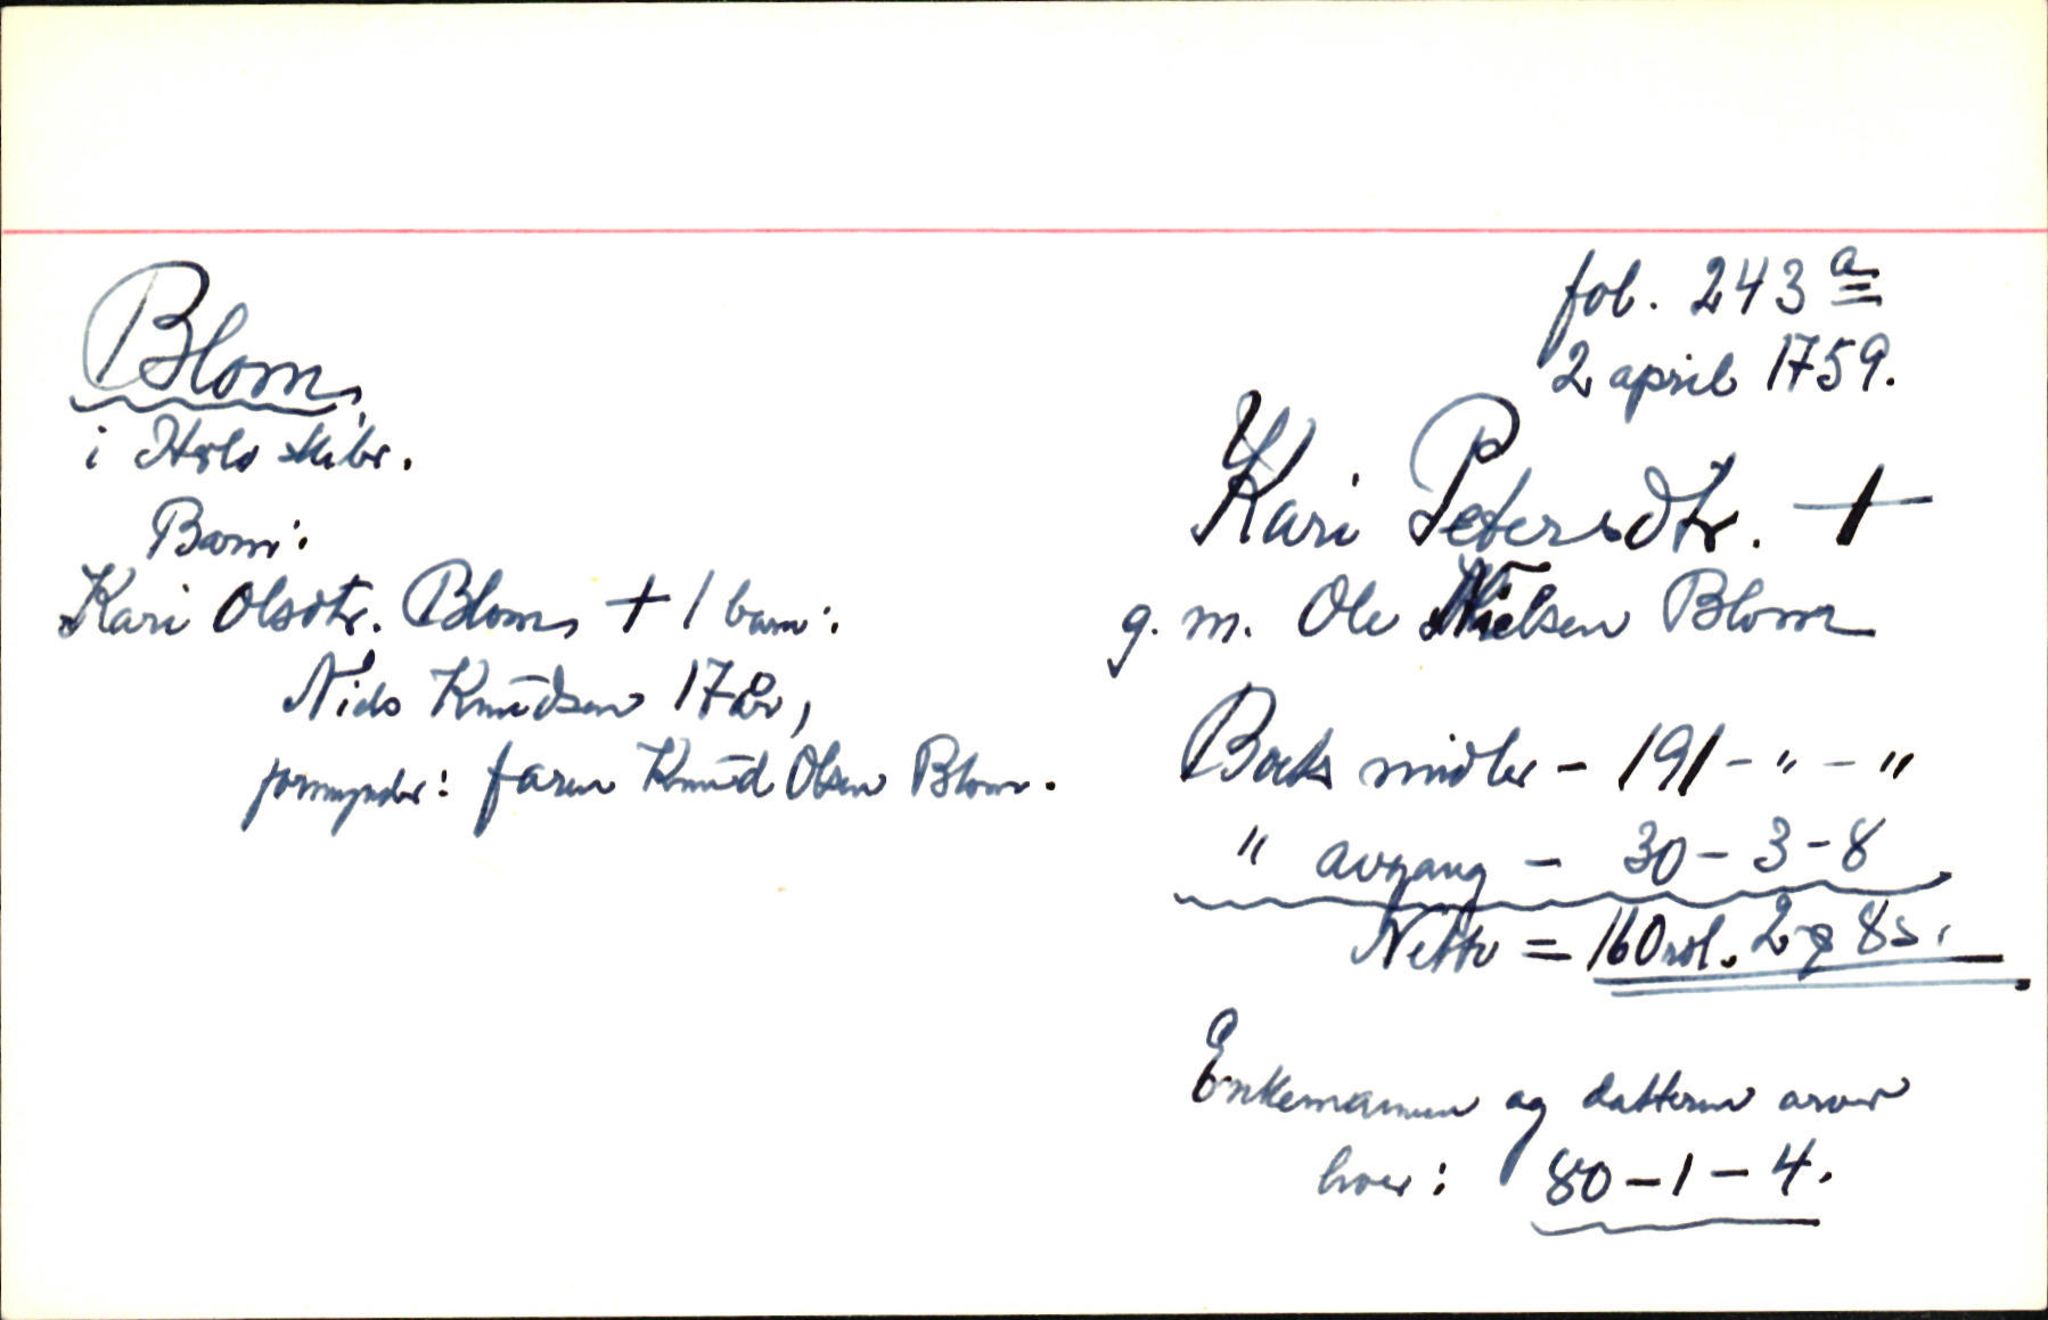 Blom,
i Herlø skibr.
Barn:
Kari Olsdtr. Blom, + 1 barn:
Niels Knudsen 17 år,
formynder: faren Knud Olsen Blom.
fol. 243 a
2 april 1759.
Kari Petersdtr. +
g. m. Ole Nielsen Blom
Boets midler - 191 - " - "
" avgang - 30 - 3 - 8
Netto = 160 rdl. 2 8 s.
Enkemannen og datteren arver
hver: 80 - 1 - 4.